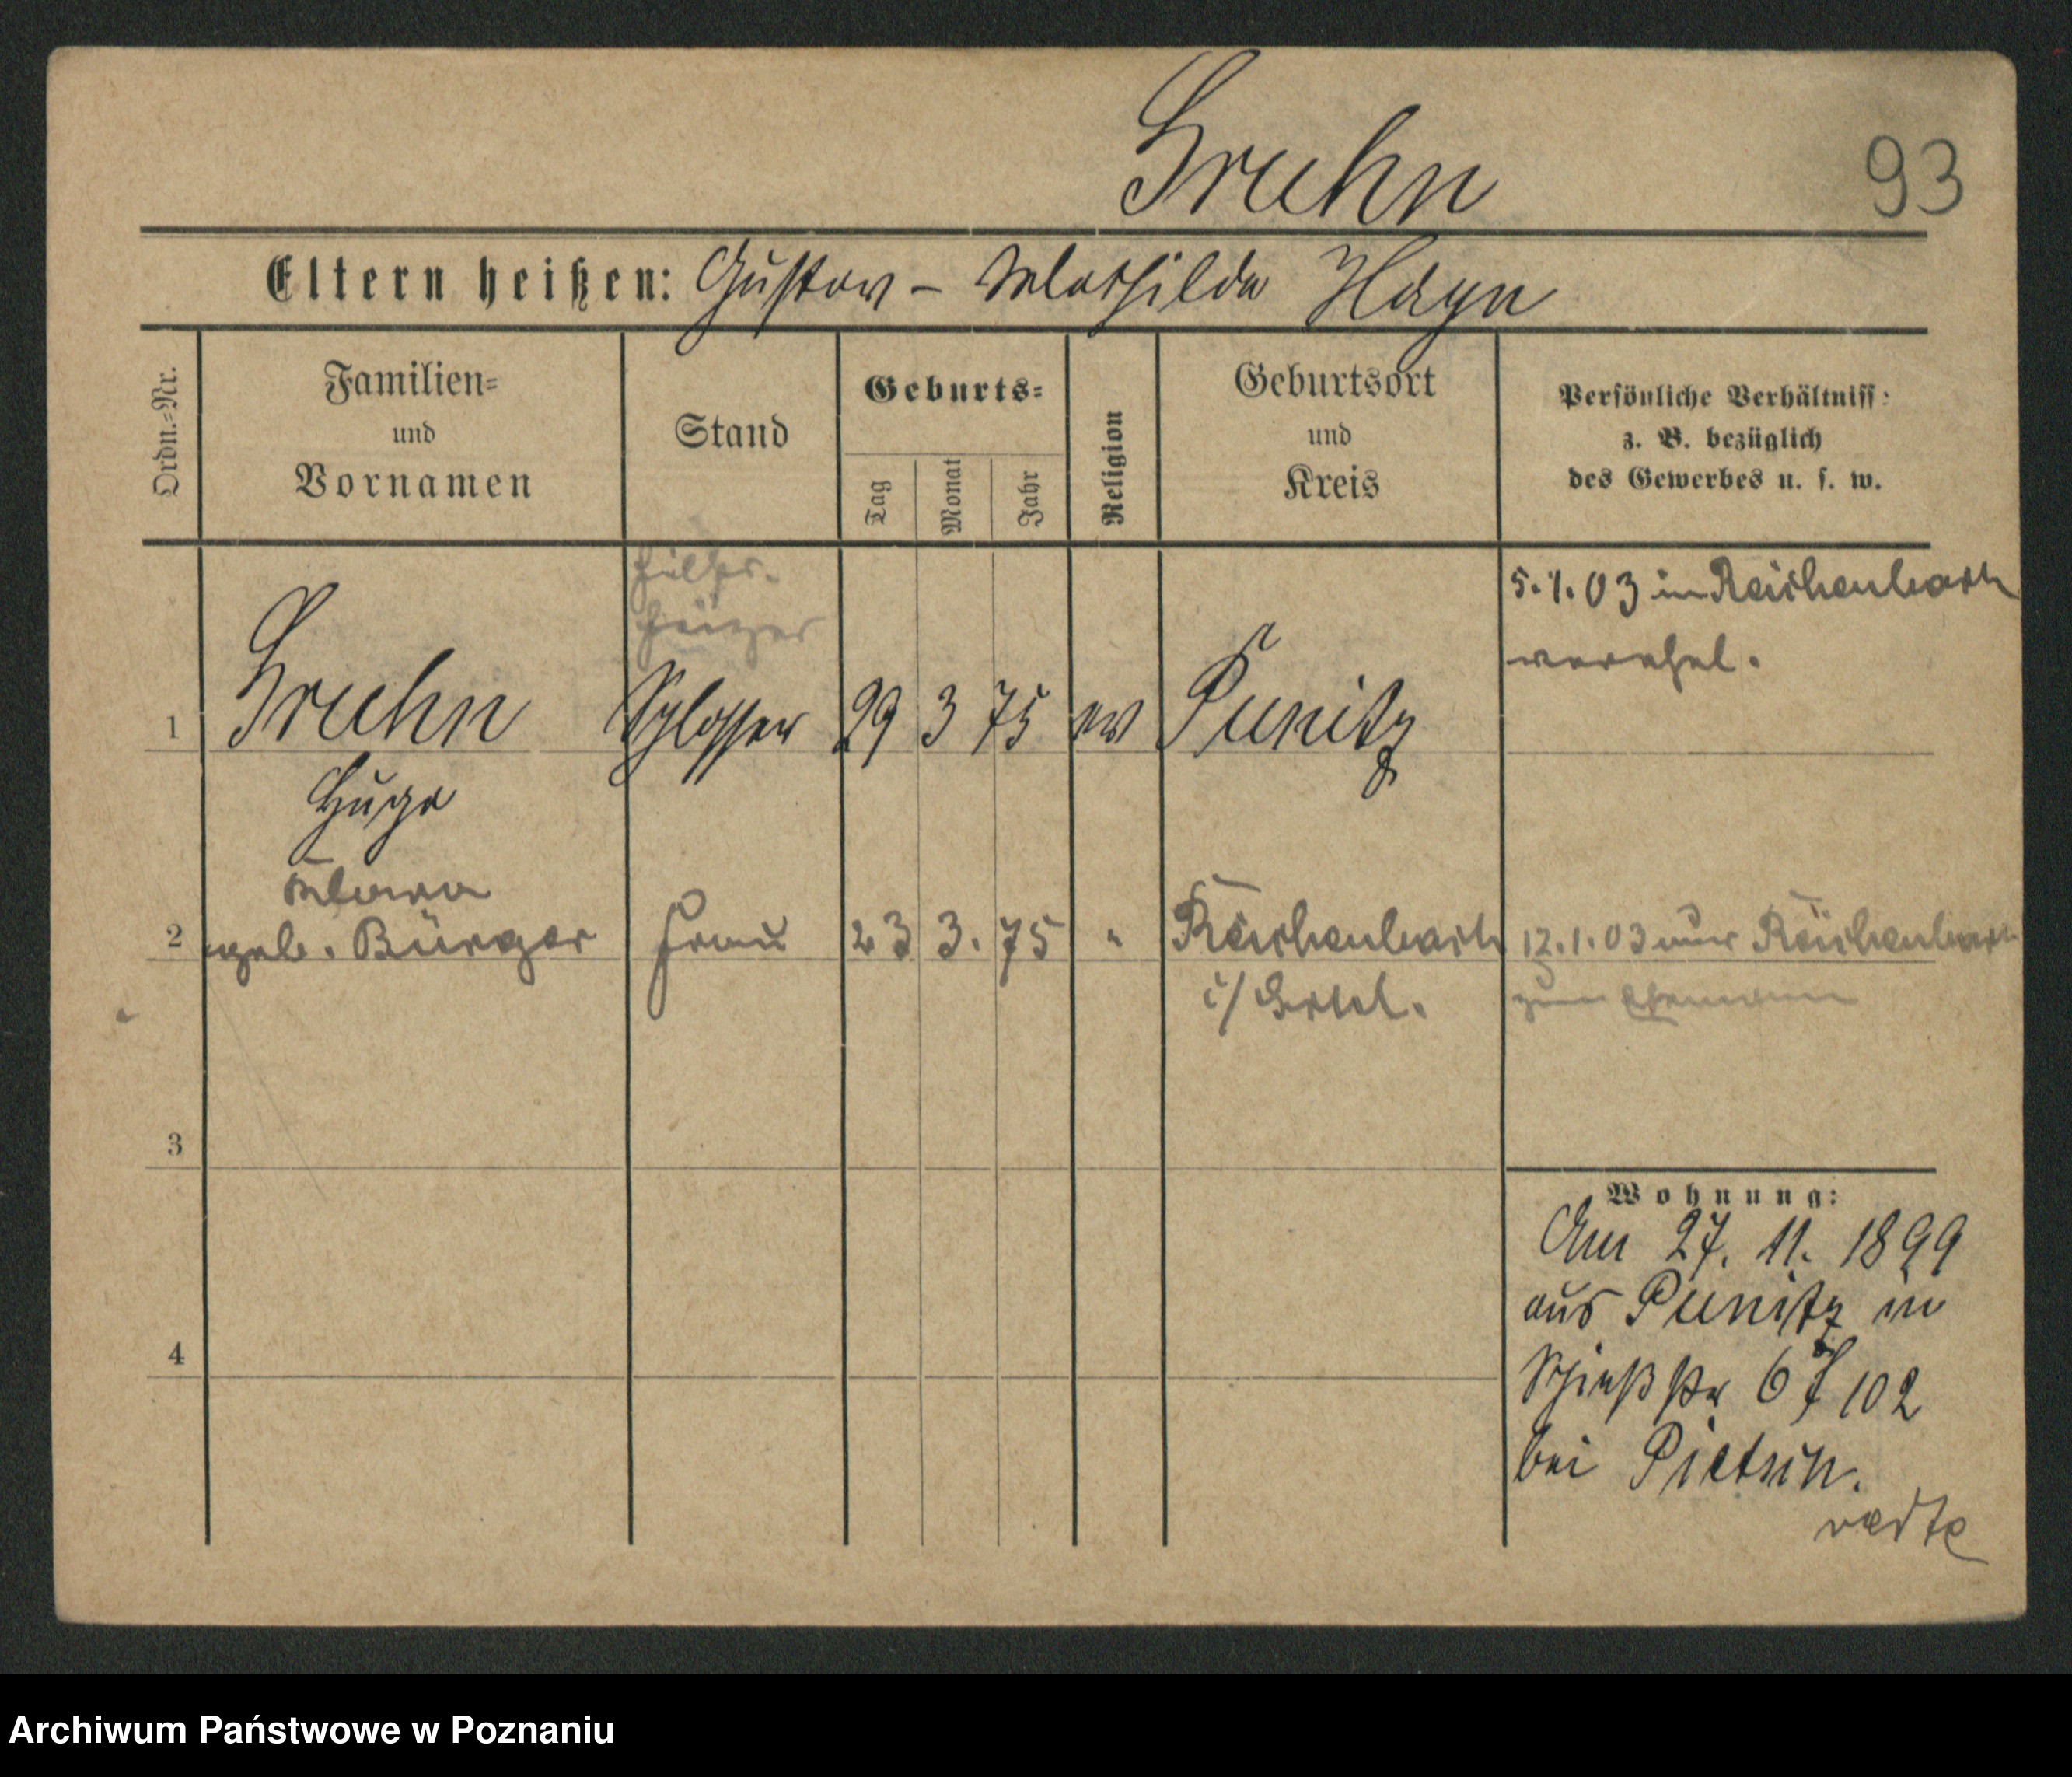 Gruhn
93
Eltern heißen: Gustav – Mathilde Hayn
Ordn.=Nr.
Familien=
und
Vornamen
Stand
Geburts=
Tag
Monat
Jahr
Religion
Geburtsort
und
Kreis
Persönliche Verhältniss:
z. B. bezüglich
des Gewerbes u. s. w.
1
Gruhn
Hugo
Hilfs-
heizer
Schlosser
29 3 75
ev
Punitz
5.1.03 in Reichenbach
verehel.
2
Klara
geb. Bürger
Frau
23 3. 75
"
Reichenbach
i/
12.1.03 aus Reichenbach
zum Ehemann
3
4
Wohnung:
Am 27. 11. 1899
aus Punitz in
Schießstr 6 102
bei